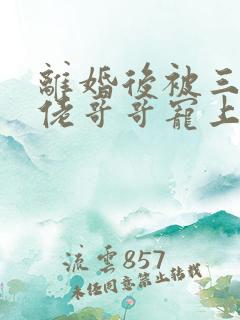 離婚後被三
佬哥哥寵上
流雲857
未经同意禁止转载